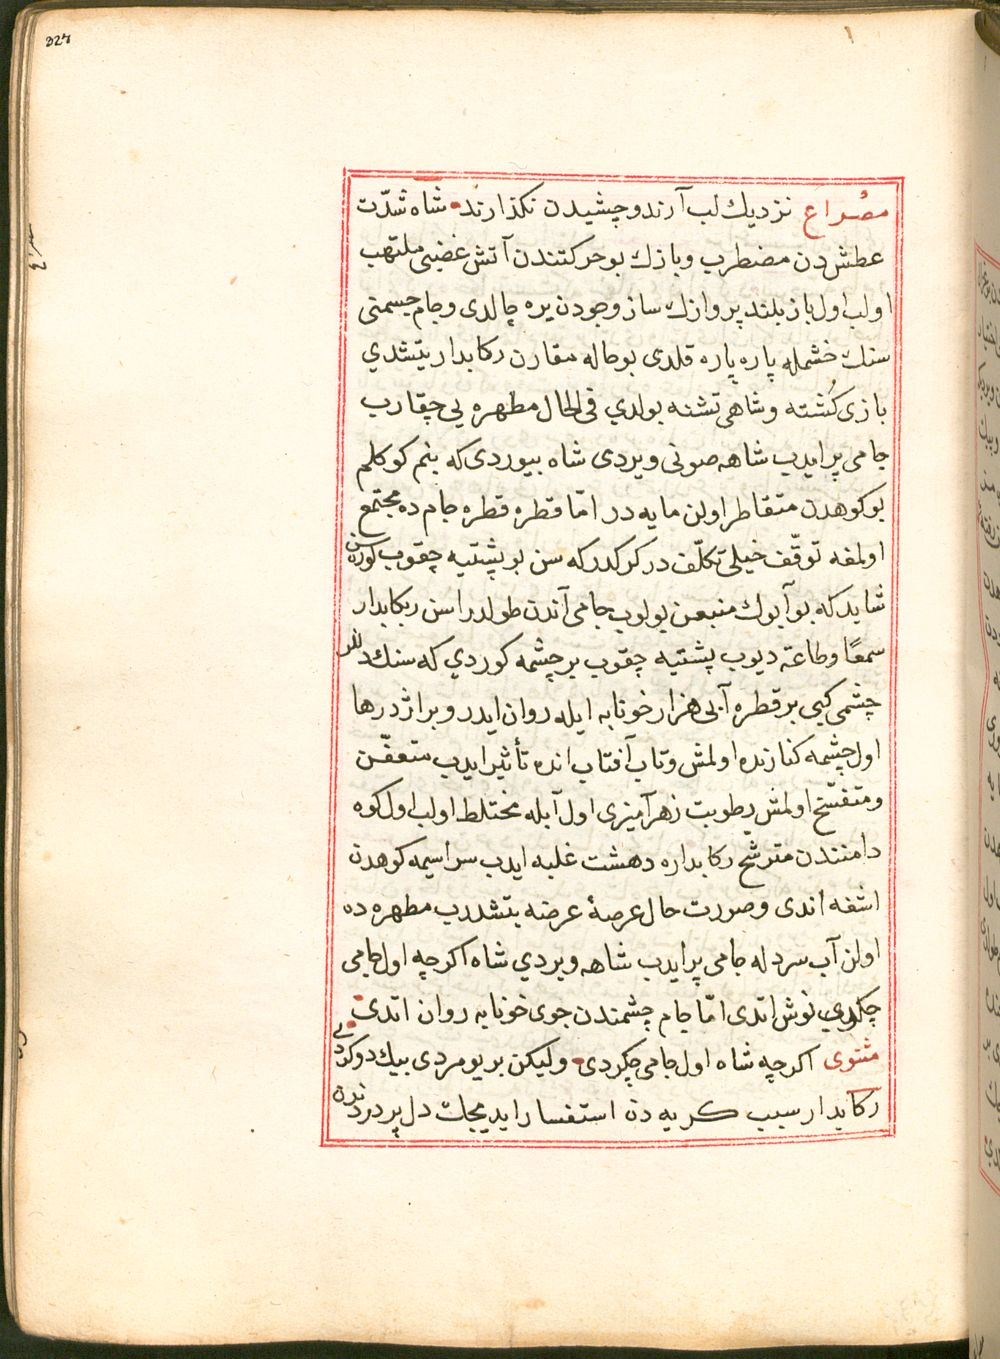 مصراع نزديك لب آرند و چشيدن نكذارند شاه شدّت
عطش دن مضطرب و بازك بو حركتندن آتش غضبى ملتهب
اولب اول باز بلند پروازك ساز وجودن يره چالدى و جام جسمنى
سنك خشمله پاره پاره قلدى بو حاله مقارن ركابدار يتشدي
بازى كُشته و شاهى تشنه بولدي فى الحال مطهره يى چقارب
جامى پر ايدب شاهه صونى ويردى شاه بيوردى كه بنم كوكلم
بو كوهدن متقاطر اولن مايه در امّا قطره قطره جام ده مجتمع
اولمغه توقّف خيلى تكلّف در كركدر كه سن بو پشتيه چقوب كوره سن
شايد كه بو آبوك منبعن بولوب جامى آندن طولدراسن ركابدار
سمعًا و طاعة ديوب پشتيه چقوب بر چشمه كوردي كه سنك دللر
چشمى كبى بر قطره آبى هزار خونابه ايله روان ايدر و بر اژدرها
اول چشمه كنارنده اولمش و تاب آفتاب انده تأثير ايدب متعفّن
و متفسّخ اولمش رطوبت زهر آميزى اول آبله مختلط اولب اول كوه
دامنندن مترشّح ركابداره دهشت غلبه ايدب سراسيمه كوهدن
اشغه اندى و صورت حال عرصۀ عرضه يتشدرب مطهره ده
اولن آب سردله جامى پر ايدب شاهه ويردي شاه اكرچه اول جامى
چكدي نوش اتدى امّا جام چشمندن جوى خونابه روان اتدى
مثنوى اكرچه شاه اول جامى چكردى وليكن بر يومردى بيك دوكردى
ركابدار سبب كريه دن استفسار ايديجك دل پر دردندن